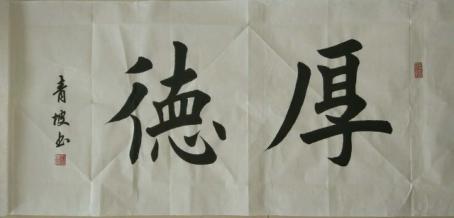 厚德
青坡书